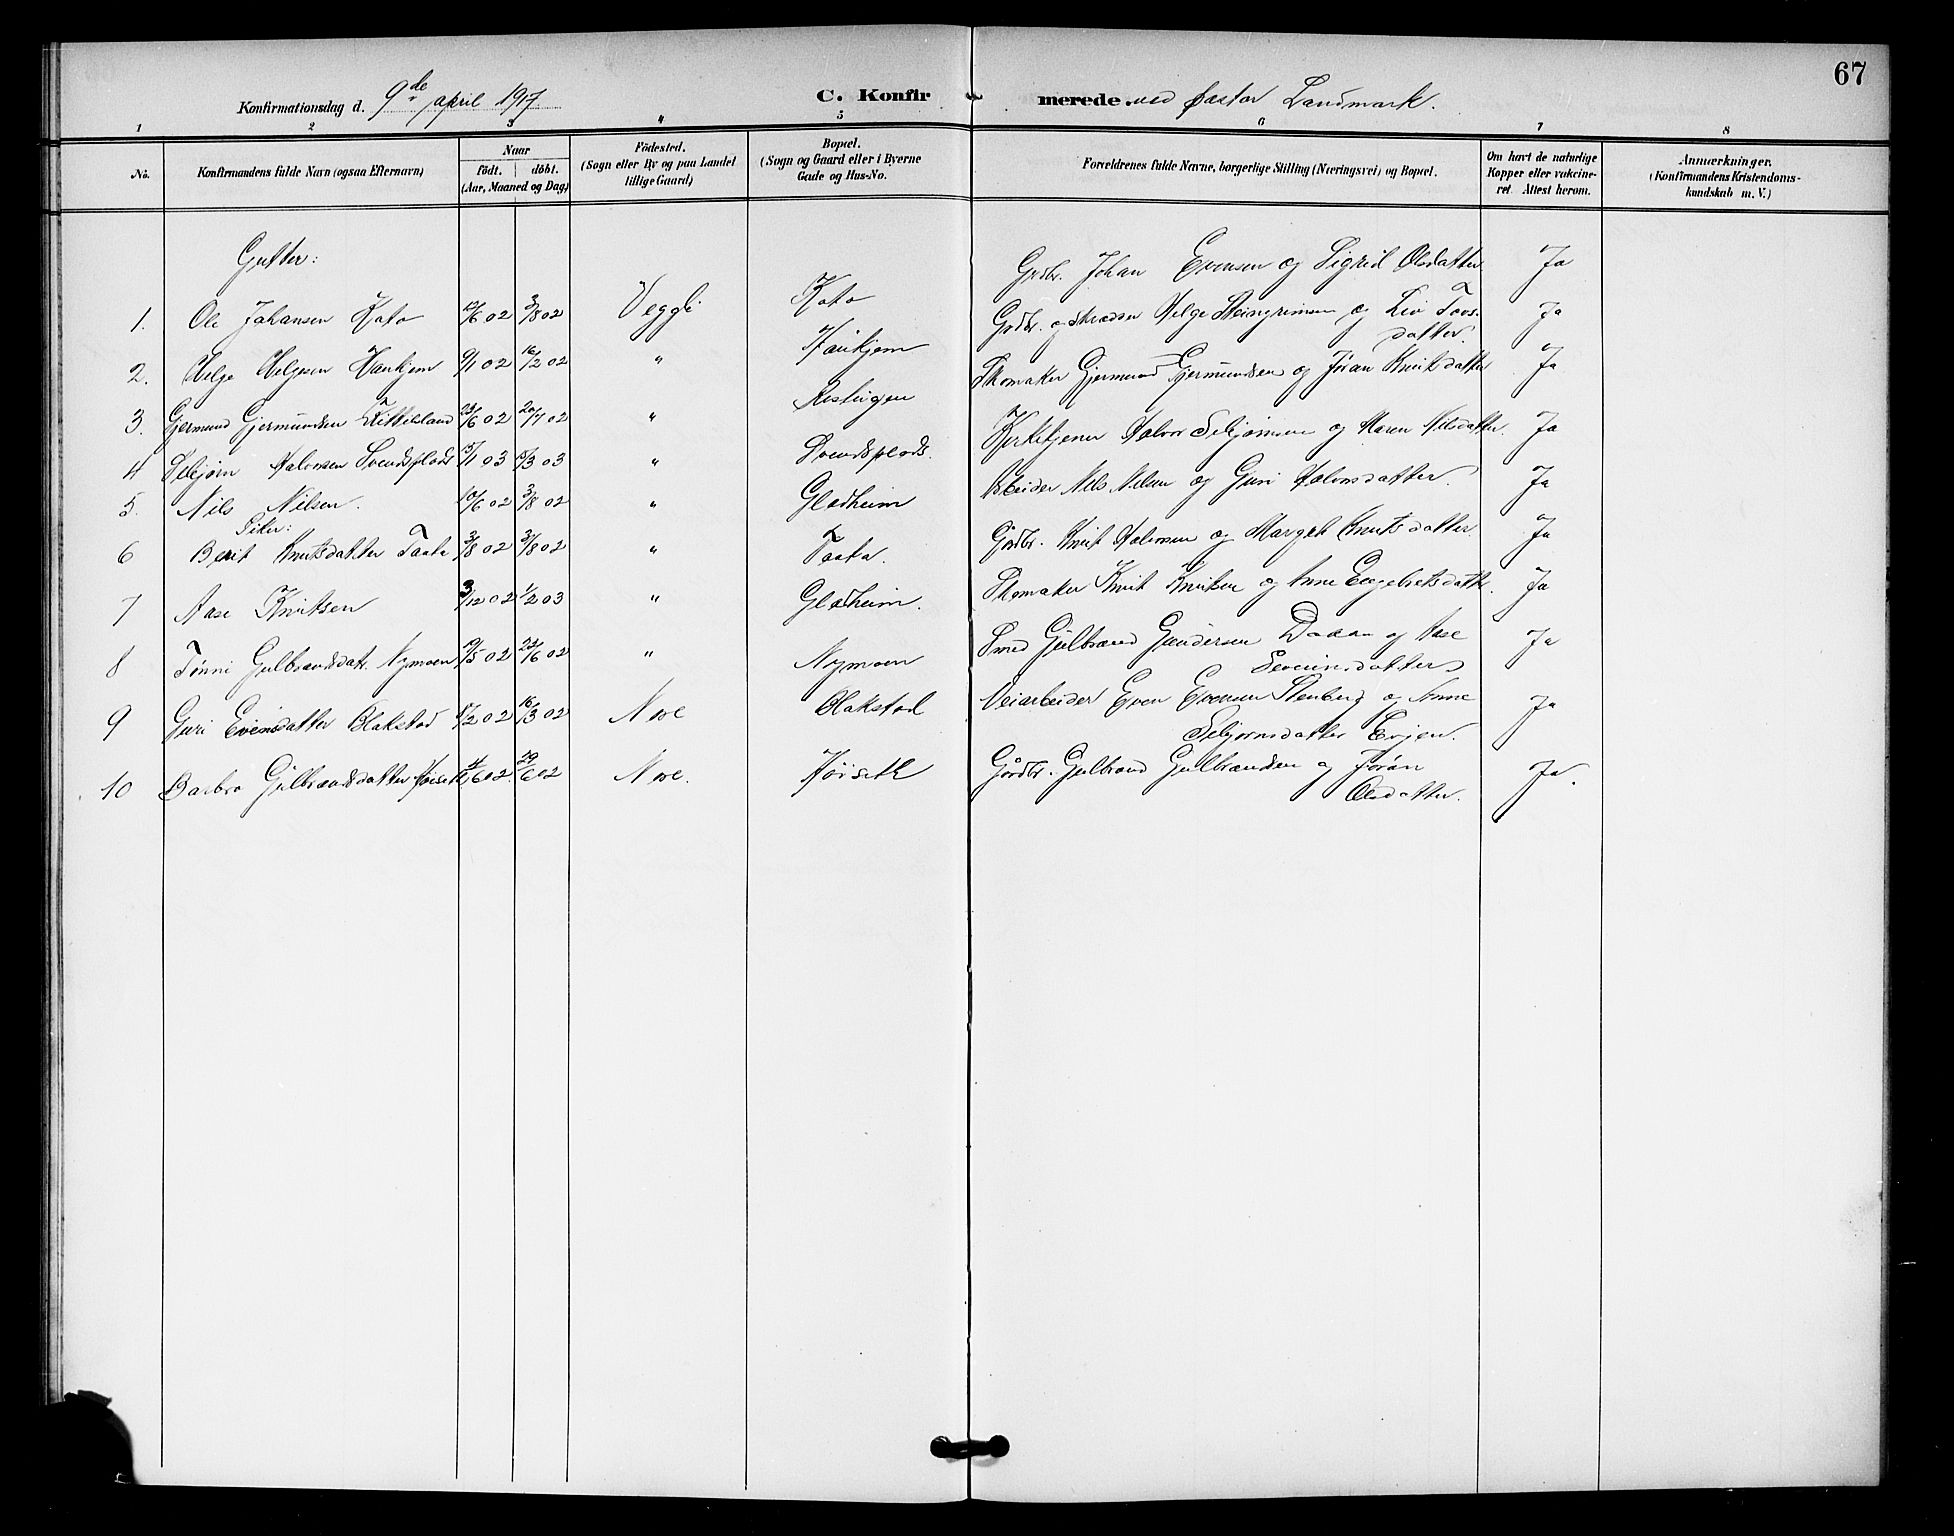 67
Konfirmationsdag d. 9de april 1917 C. Konfirmerede. ved pastor Landmark.
1 2 3 4 5 6 7 8
No. Konfirmandens fulde Navn (ogsaa Efternavn) Naar födt. döbt. (Aar, Maaned og Dag) Födested. (Sogn eller By og paa Landet tillige Gaard) Bopæl. (Sogn og Gaard eller i Byerne Gade og Hus-No. Forældrenes fulde Navne, borgerlige Stilling (Næringsvei) og Bopæl. Om havt de naturlige Kopper eller vakcineret. Attest herom. Anmærkninger. (Konfirmandens Kristendomskundskab m. V.)
Gutter:
1. Ole Johansen Kato 12/6 02 3/8 02 Veggli Kato Grdbr. Johan Evensen og Sigrid Olsdatter Ja
2. Helge Helgesen Kankjem 9/1 02 16/2 02 " Kankjem Grdbr. og Helge Steingrimsen og Liv Tovsdatter. Ja
3. Gjermund Gjermundsen Kittilsland 23/6 02 20/7 02 " Rislingen Skomaker Gjermund Gjermundsen og Jøran Knutsdatter Ja
4 Sebjørn Halvorsen Svendsplads 15/1 03 /3 03 " Svendsplads. Kirketjener Halvor Sebjørnsen og Maren Nilsdatter. Ja
5. Nils Nilsen. 10/6 02 3/8 02 " Gladheim Arbeider Nils Nilsen og Guri Halvorsdatter. Ja
Piker:
6 Berit Knutsdatter Taata 3/8 02 31/8 02 " Taata. Gårdbr. Knut Halvorsen og Margit Knutsdatter Ja
7 Aase Knutsen 3/12 02 1/2 03 " Gladheim. Skomaker Knut Knutsen og Anne Engebretsdatter. Ja
8 Tønni Gulbrandsdatt. Nymoen /5 02 22/6 02 " Nymoen Smed Gulbrand Gundersen og Aase Severinsdatter Ja
9 Guri Evensdatter Blakstad /2 02 16/3 02 Nore Blakstad Veiarbeider Even Evensen Stenberg og Anne Sebjørnsdatter Evjen. Ja
10 Barbro Gulbrandsdatter Høiseth /6 02. 29/6 02 Nore. Høiseth Gårdbr. Gulbrand Gulbrandsen og Jorån Olsdatter. Ja.